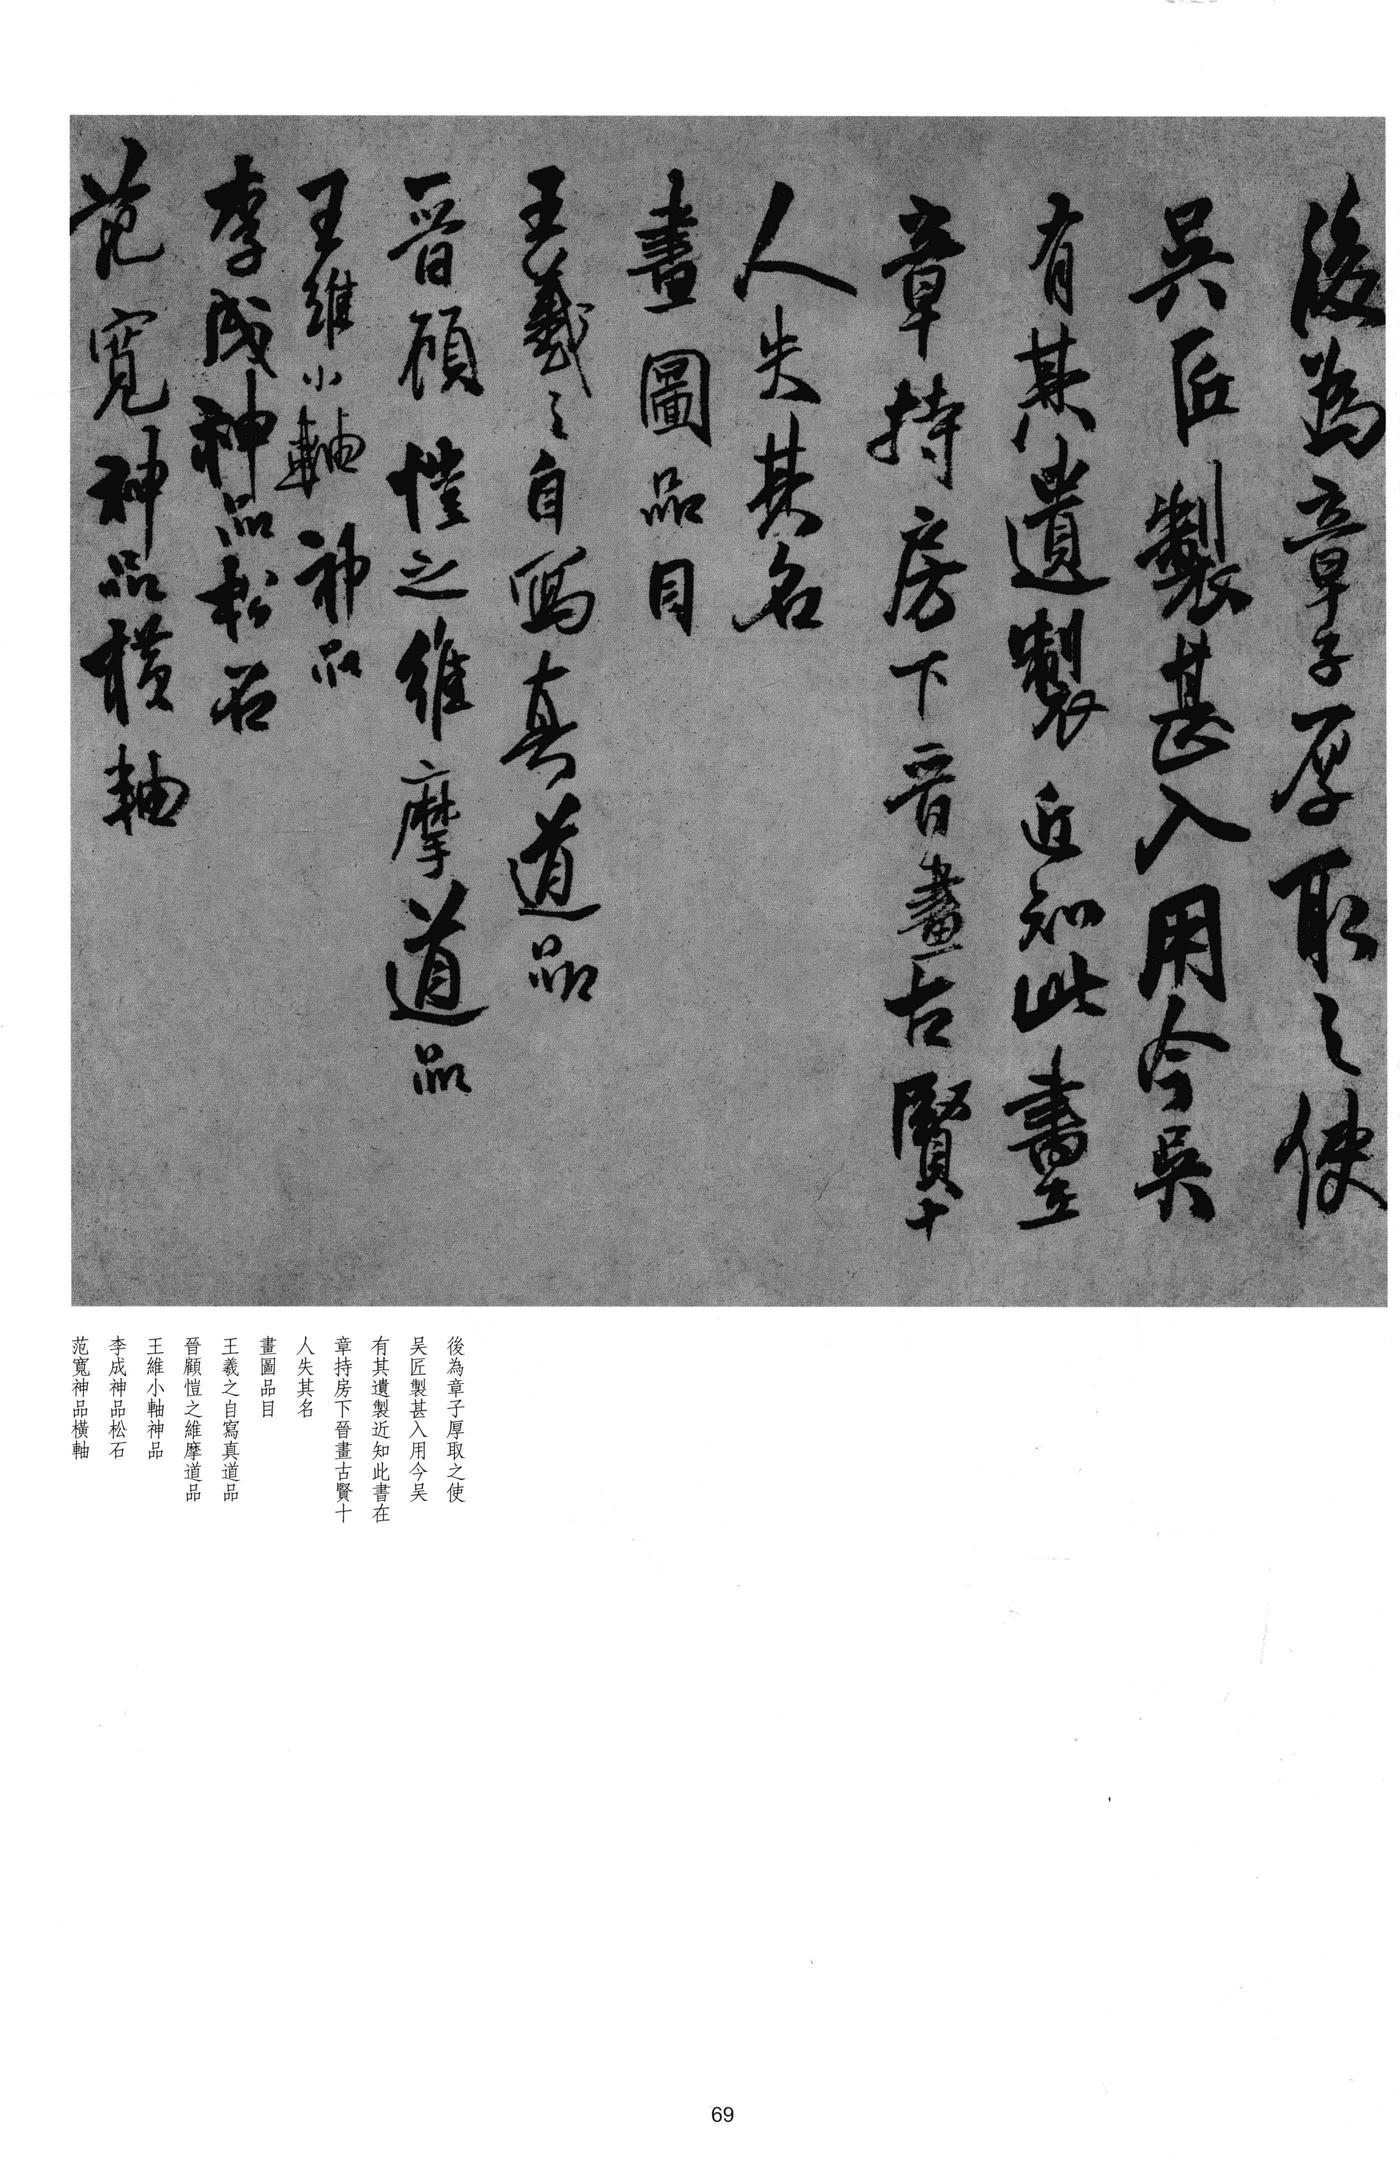 後為章子厚取之使
吳匠製甚入用今吳
有其遺製近知此書在
章持房下晉畫古賢十
人失其名
畫圖品目
王羲之自寫真道品
晉顧愷之維摩道品
王維小軸神品
李成神品松石
范寬神品橫軸
後為章子厚取之使
吴匠製甚入用今吴
有其遺製近知此書在
章持房下晉畫古賢十
人失其名
畫圖品目
王羲之自寫真道品
晉顧愷之維摩道品
王維小軸神品
李成神品松石
范寬神品橫軸
69